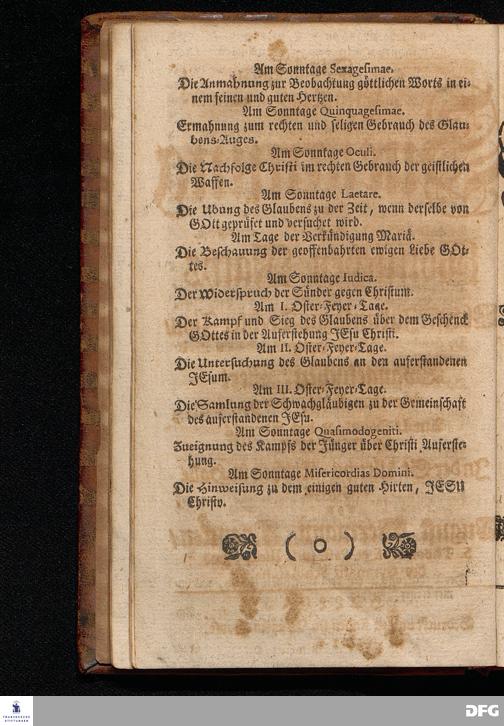 Am Sonntage Sexagesimae.
Die Anmahnung zur Beobachtung göttlichen Worts in ei-
nem feinen und guten Hertzen.
Am Sonntage Quinquagesimae.
Ermahnung zum rechten und seligen Gebrauch des Glau-
bens-Auges.
Am Sonntage Oculi.
Die Nachfolge Christi im rechten Gebrauch der geistlichen
Waffen.
Am Sonntage Laetare.
Die Übung des Glaubens zu der Zeit, wenn derselbe von
GOtt geprüfet und versuchet wird.
Am Tage der Verkündigung Mariä.
Die Beschauung der geoffenbahrten ewigen Liebe GOt-
tes.
Am Sonntage Iudica.
Der Widerspruch der Sünder gegen Christum.
Am I. Oster-Feyer-Tage.
Der Kampf und Sieg des Glaubens über dem Geschenck
GOttes in der Auferstehung JEsu Christi.
Am II. Oster-Feyer-Tage.
Die Untersuchung des Glaubens an den auferstandenen
JEsum.
Am III. Oster-Feyer-Tage.
Die Samlung der Schwachgläubigen zu der Gemeinschaft
des auferstandenen JEsu.
Am Sonntage Quasimodogeniti.
Zueignung des Kampfs der Jünger über Christi Auferste-
hung.
Am Sonntage Misericordias Domini.
Die Hinweisung zu dem einigen guten Hirten, JESU
Christo.
FRANCKESCHE
STIFTUNGEN
DFG